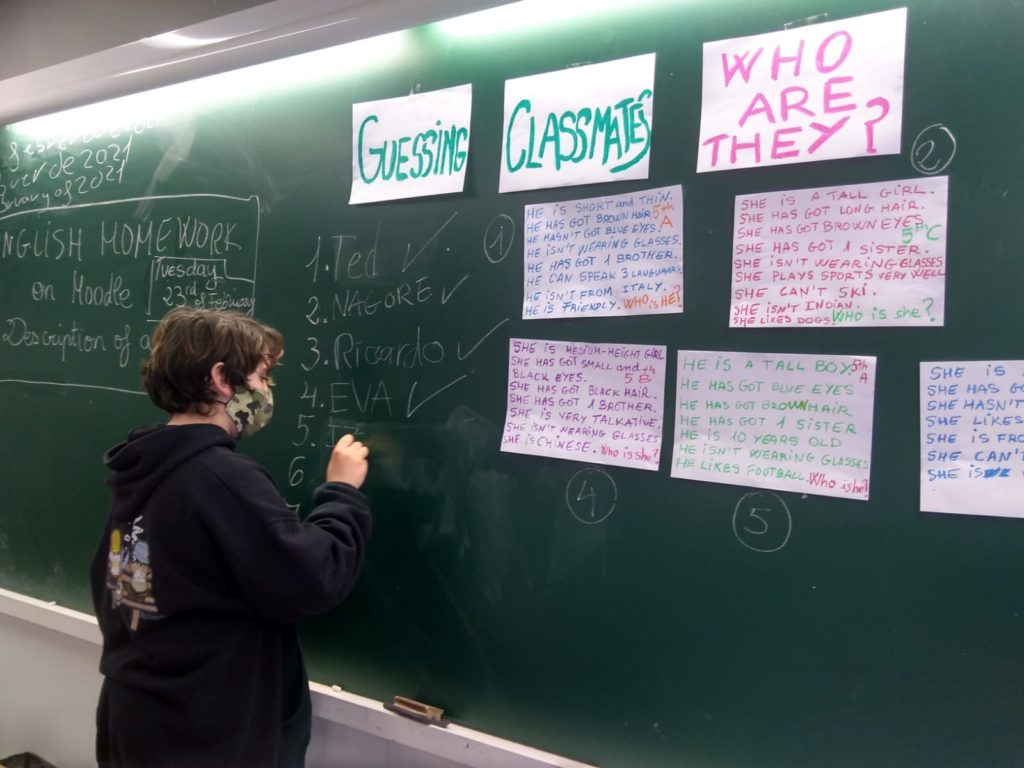 GUESSING
CLASSMATES
WHO
ARE
THEY?
de 2021
of 2021
ENGLISH HOMEWORK
on Moodle
Tuesday
23rd of February
Description of a
1. Ted ✓
2. NAGORE ✓
3. Riccardo ✓
4. EVA ✓
5.
6
1
HE IS SHORT and THIN.
HE HAS GOT BROWN HAIR 5th
HE HASN'T GOT BLUE EYES. A
HE ISN'T WEARING GLASSES.
HE HAS GOT 1 BROTHER.
HE CAN SPEAK 3 LANGUAGES.
HE ISN'T FROM ITALY.
HE IS FRIENDLY. WHO iS HE?
2
SHE IS A TALL GIRL.
SHE HAS GOT LONG HAIR.
SHE HAS GOT BROWN EYES
5th C
SHE HAS GOT 1 SISTER.
SHE ISN'T WEARING GLASSES
SHE PLAYS SPORTS VERY WELL
SHE CAN'T SKI.
SHE ISN'T INDIAN.
SHE LIKES DOGS. Who is she?
SHE IS MEDIUM-HEIGHT GIRL
SHE HAS GOT SMALL and
BLACK EYES. 5th B
SHE HAS GOT BLACK HAIR.
SHE HAS GOT 1 BROTHER.
SHE IS VERY TALKATIVE.
SHE ISN'T WEARING GLASSES
SHE IS CHINESE. Who is she?
4
HE IS A TALL BOY. 5th
A
HE HAS GOT BLUE EYES
HE HAS GOT BROWN HAIR
HE HAS GOT 1 SISTER
HE IS 10 YEARS OLD
HE ISN'T WEARING GLASSES
HE LIKES FOOTBALL. Who is he?
5
SHE IS
SHE HAS
SHE HASN'T
SHE LIKES
SHE IS
SHE CAN'T
SHE IS